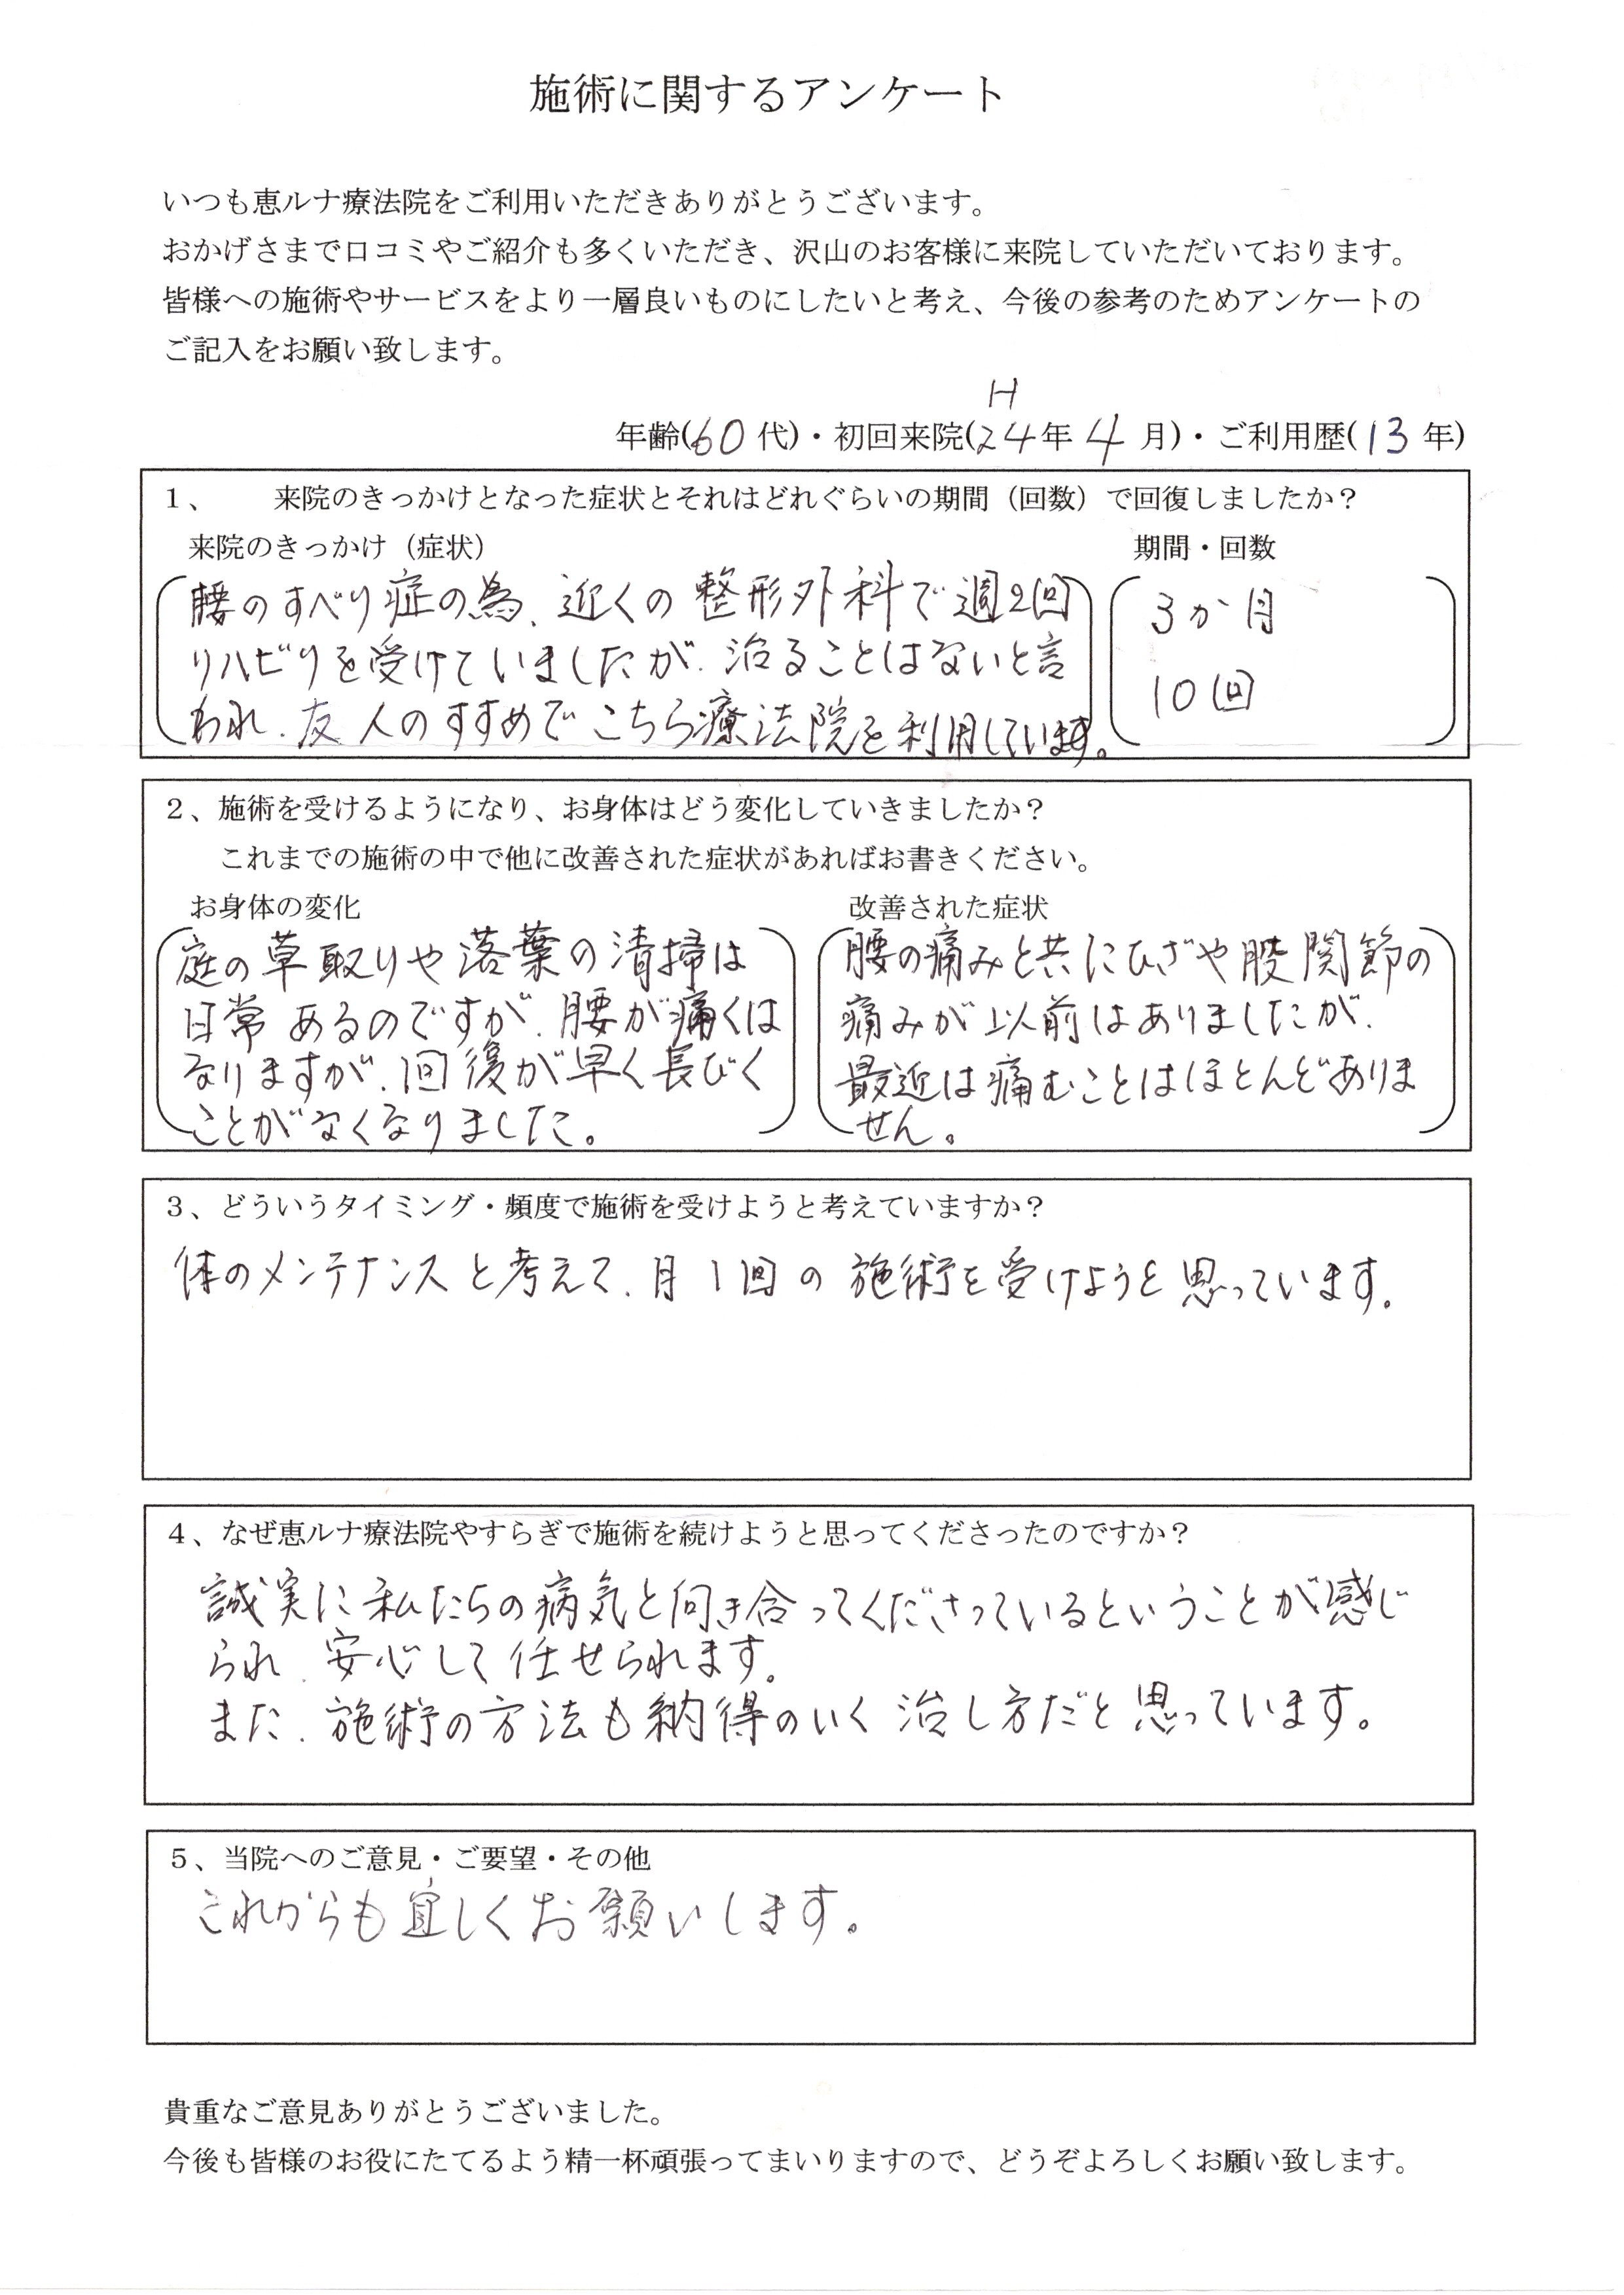 施術に関するアンケート
いつも恵ルナ療法院をご利用いただきありがとうございます。
おかげさまで口コミやご紹介も多くいただき、沢山のお客様に来院していただいております。
皆様への施術やサービスをより一層良いものにしたいと考え、今後の参考のためアンケートの
ご記入をお願い致します。
H
年齢(60代)・初回来院(24年4月)・ご利用歴(13年)
1、　来院のきっかけとなった症状とそれはどれぐらいの期間（回数）で回復しましたか？
来院のきっかけ（症状）　期間・回数
腰のすべり症の為、近くの整形外科で週2回
リハビリを受けていましたが、治ることはないと言
われ、友人のすすめでこちら療法院を利用しています。
3か月
10回
2、施術を受けるようになり、お身体はどう変化していきましたか？
これまでの施術の中で他に改善された症状があればお書きください。
お身体の変化
庭の草取りや落葉の清掃は
日常あるのですが、腰が痛くは
なりますが、回復が早く長びく
ことがなくなりました。
改善された症状
腰の痛みと共にひざや股関節の
痛みが以前はありましたが、
最近は痛むことはほとんどありま
せん。
3、どういうタイミング・頻度で施術を受けようと考えていますか？
体のメンテナンスと考えて、月1回の施術を受けようと思っています。
4、なぜ恵ルナ療法院やすらぎで施術を続けようと思ってくださったのですか？
誠実に私たちの病気と向き合ってくださっているということが感じ
られ、安心して任せられます。
また、施術の方法も納得のいく治し方だと思っています。
5、当院へのご意見・ご要望・その他
これからも宜しくお願いします。
貴重なご意見ありがとうございました。
今後も皆様のお役にたてるよう精一杯頑張ってまいりますので、どうぞよろしくお願い致します。